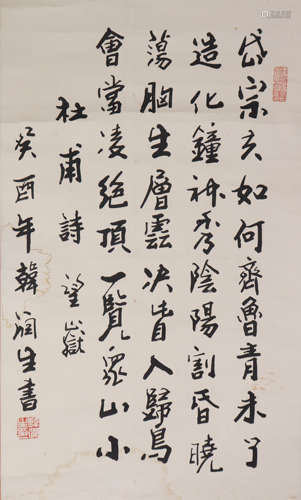 岱宗夫如何齊魯青未了
造化鐘神秀陰陽割昏曉
蕩胸生層雲決眥入歸鳥
會當凌絕頂一覽眾山小
杜甫詩 望嶽
癸酉年韓润生書